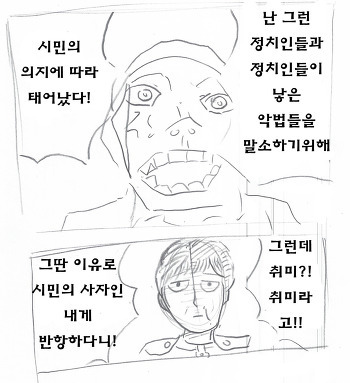 난 그런
정치인들과
정치인들이
낳은
악법들을
말소하기위해
시민의
의지에 따라
태어났다!
그런데
취미?!
취미라
고!!
그딴 이유로
시민의 사자인
내게
반항하다니!